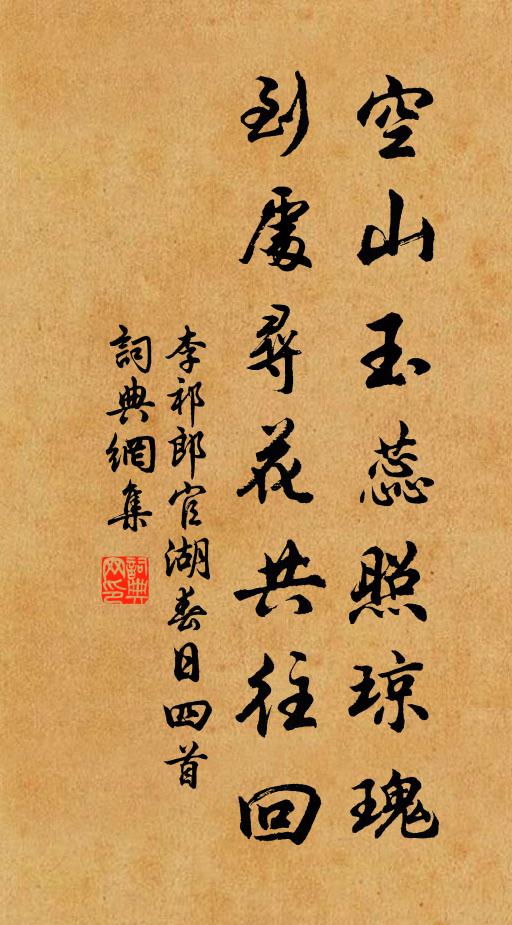 空山玉蕊照琼瑰
到處尋花共往回
李祁郎官湖春日四首
詞典網集
詞典网印